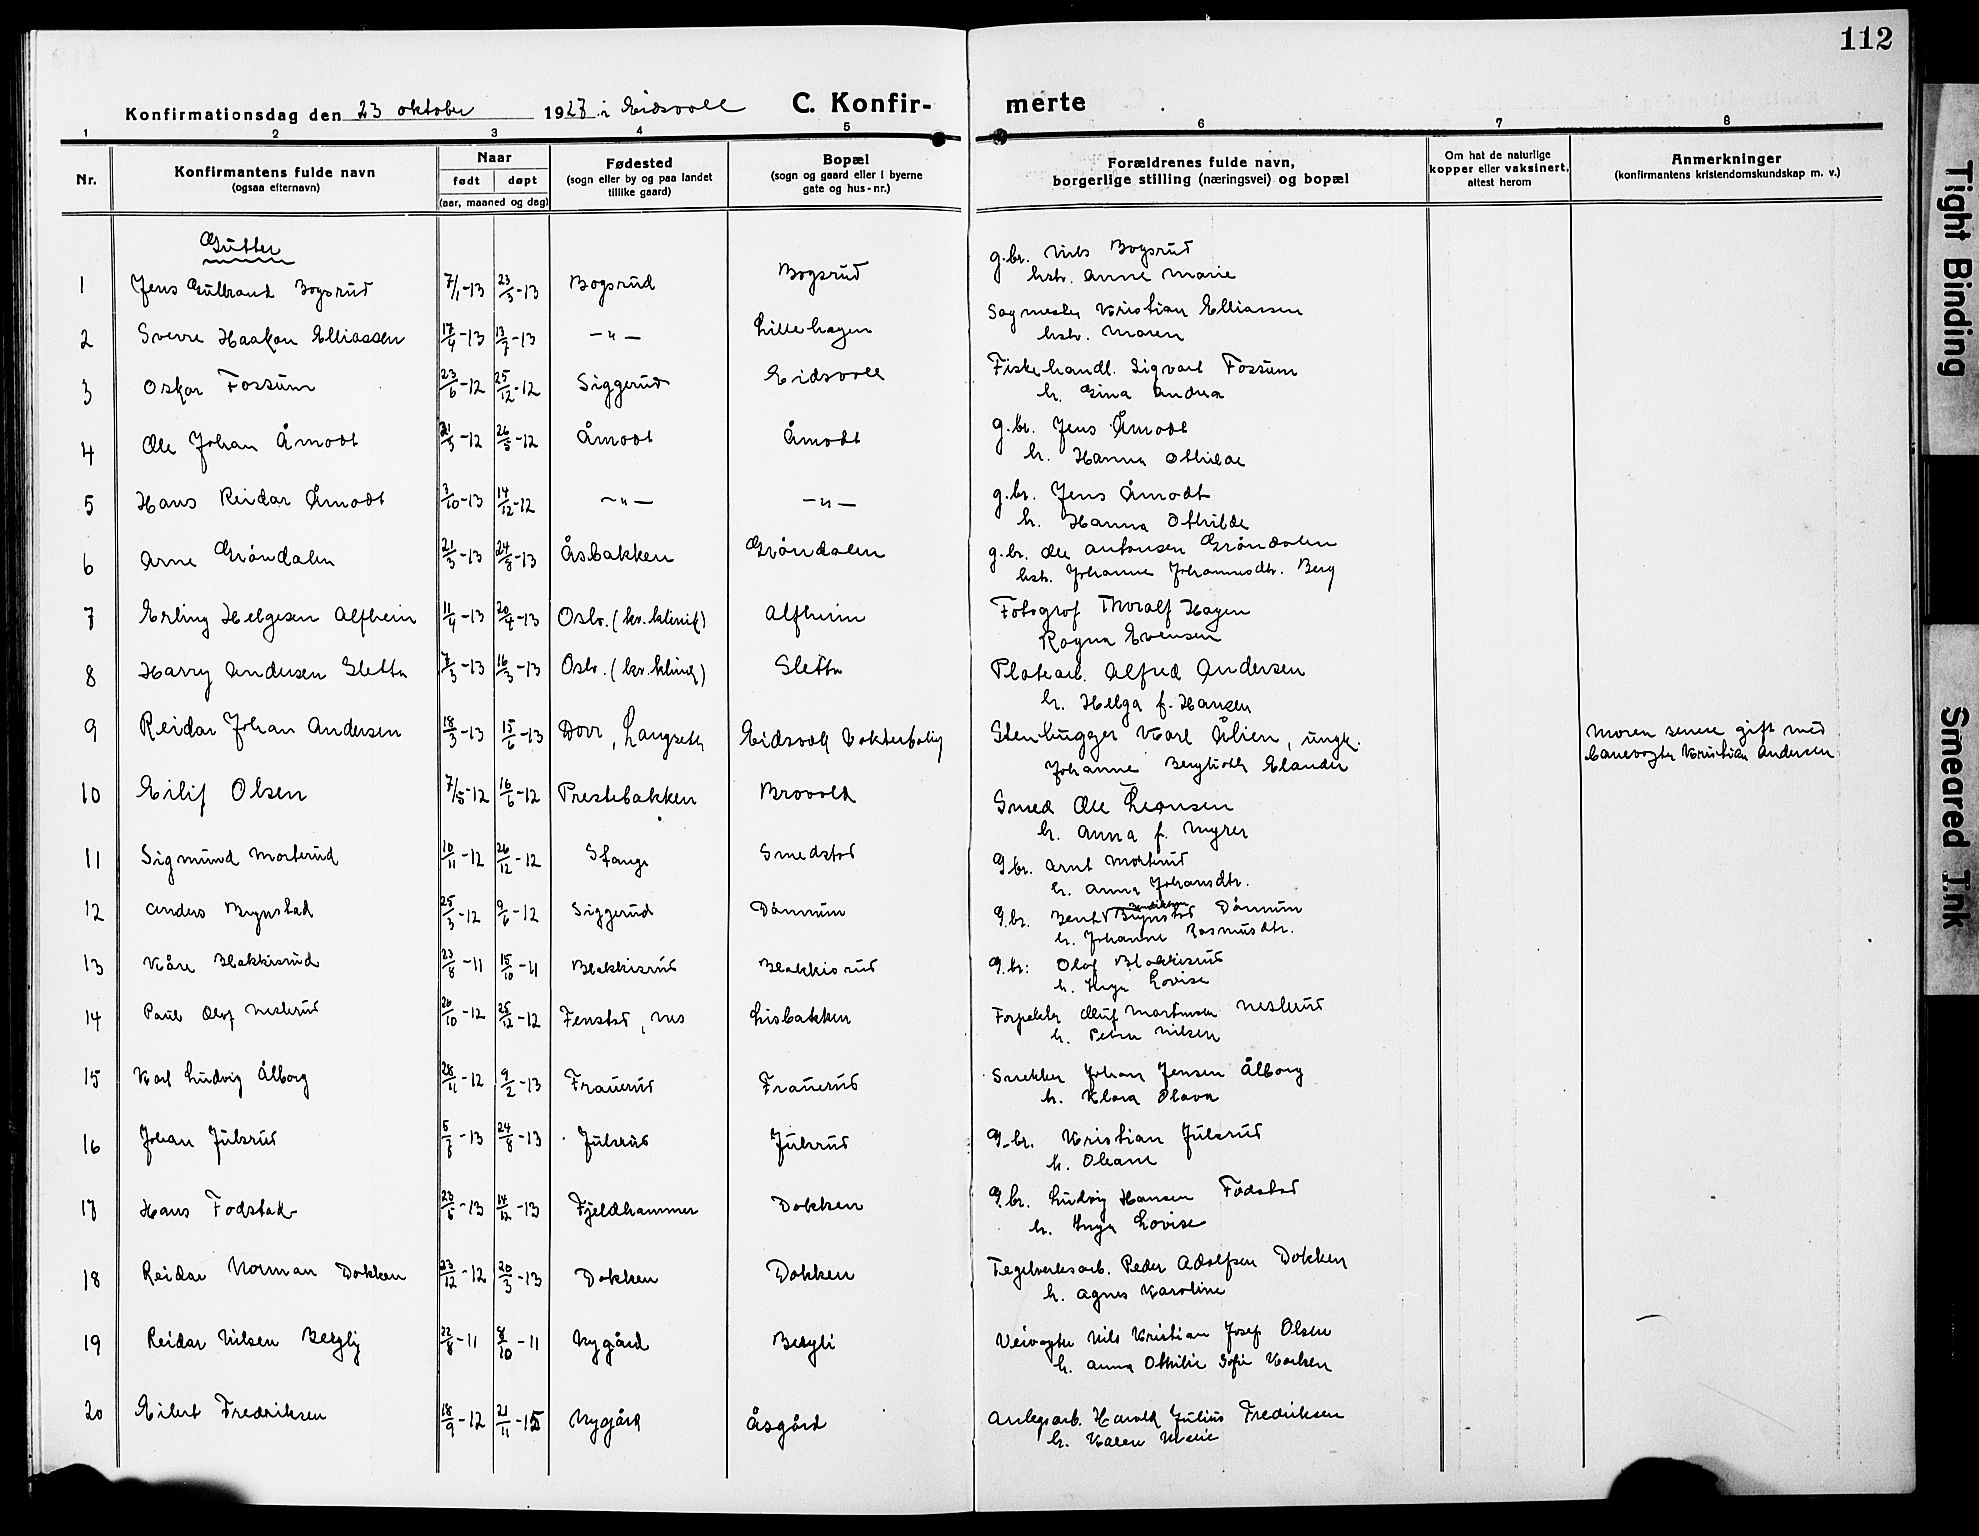 112
Konfirmationsdag den 23 oktober 1927 i Eidsvoll C. Konfir- merte
1 2 3 4 5 6 7 8
Nr. Konfirmantens fulde navn (ogsaa efternavn) Naar født døpt (aar, maaned og dag) Fødested (sogn eller by og paa landet tillike gaard) Bopæl (sogn og gaard eller i byerne gate og hus-nr.) Forældrenes fulde navn, borgerlige stilling (næringsvei) og bopæl Om hat de naturlige kopper eller vaksinert, attest herom Anmerkninger (konfirmantens kristendomskundskap m. v.)
Gutter
1 Jens Gulbrand Bogsrud 7/1-13 23/3-13 Bogsrud Bogsrud g.br. Nils Bogsrud
hstr. Anne Marie
2 Sverre Haakon Elliassen 17/4-13 13/7-13 -"- Lillehagen Sagmester Kristian Elliassen
hstr. Maren
3 Oskar Fossum 23/6-12 25/12-12 Siggerud Eidsvoll Fiskehandl. Sigvart Fossum
h. Gina Andrea
4 Ole Johan Åmodt 21/3-12 26/5-12 Åmodt Åmodt g.br. Jens Åmodt
h. Hanna Othilde
5 Hans Reidar Åmodt 3/10-13 14/12-12 -"- -"- g.br. Jens Åmodt
h. Hanna Othilde
6 Arne Grøndalen 21/3-13 24/8-13 Åsbakken Grøndalen g.br. Ole Antonsen Grøndalen
hstr. Johanne Johannesdtr. Berg
7 Erling Helgesen Alfheim 11/4-13 20/4-13 Oslo. (kv.klinik) Alfheim Fotograf Thoralf Hagen
Ragna Evensen
8 Harry Andersen Sletta 7/3-13 16/3-13 Oslo. (kv.klinik) Sletta Platearb. Alfred Andersen
h. Helga f. Hansen
9 Reidar Johan Andersen 18/3-13 15/6-13 Dovr, Langseth Eidsvoll Vokterbolig Stenhugger Karl Ålien, ungk.
Johanne Berglioth Elander
Moren senere gift med
banevogter Kristian Andersen
10 Eilif Olsen 7/5-12 16/6-12 Prestebakken Brovold Smed Ole Hansen
h. Anna f. Myrer
11 Sigmund Morterud 10/11-12 26/12-12 Stange Smedstad G.br. Arnt Morterud
h. Anna Johansdtr.
12 Anders Brynstad 25/3-12 9/6-12 Siggerud Dønnum G.br. Bernt Brynstad Dønnum
h. Johanne Rasmusdtr.
13 Kåre Blakkisrud 23/8-11 15/10-11 Blakkisrud Blakkisrud G.br. Olaf Blakkisrud
h. Inga Lovise
14 Paul Olaf Neskrud 26/10-12 25/12-12 Fenstad, Nes Lisbakken Forpakter Oluf Martinsen Neskrud
h. Petra Nilsen
15 Karl Ludvig Ålborg 28/11-12 9/2-13 Frauerud Frauerud Snekker Johan Jensen Ålborg
h. Klara Olava
16 Johan Julsrud 5/7-13 24/8-13 Julsrud Julsrud G-br. Kristian Julsrud
h. Oleane
17 Hans Fodstad 23/6-13 14/12-13 Fjeldhammer Dokken G.br. Ludvig Hansen Fodstad
h. Inga Lovise
18 Reidar Norman Dokken 23/12-12 20/3-13 Dokken Dokken Tegelverksarb. Peder Adolfsen Dokken
h. Agnes Karoline
19 Reidar Nilsen Bergli 22/8-11 8/10-11 Nygård Bergli Veivogter Nils Kristian Josef Olsen
h. Anna Othilie Sofie Karlsen
20 Eilert Fredriksen 18/9-12 21/11-15 Nygård Åsgård Anlegsarb. Harald Julius Fredriksen
h. Karen Marie
Tight Binding
Smeared Ink